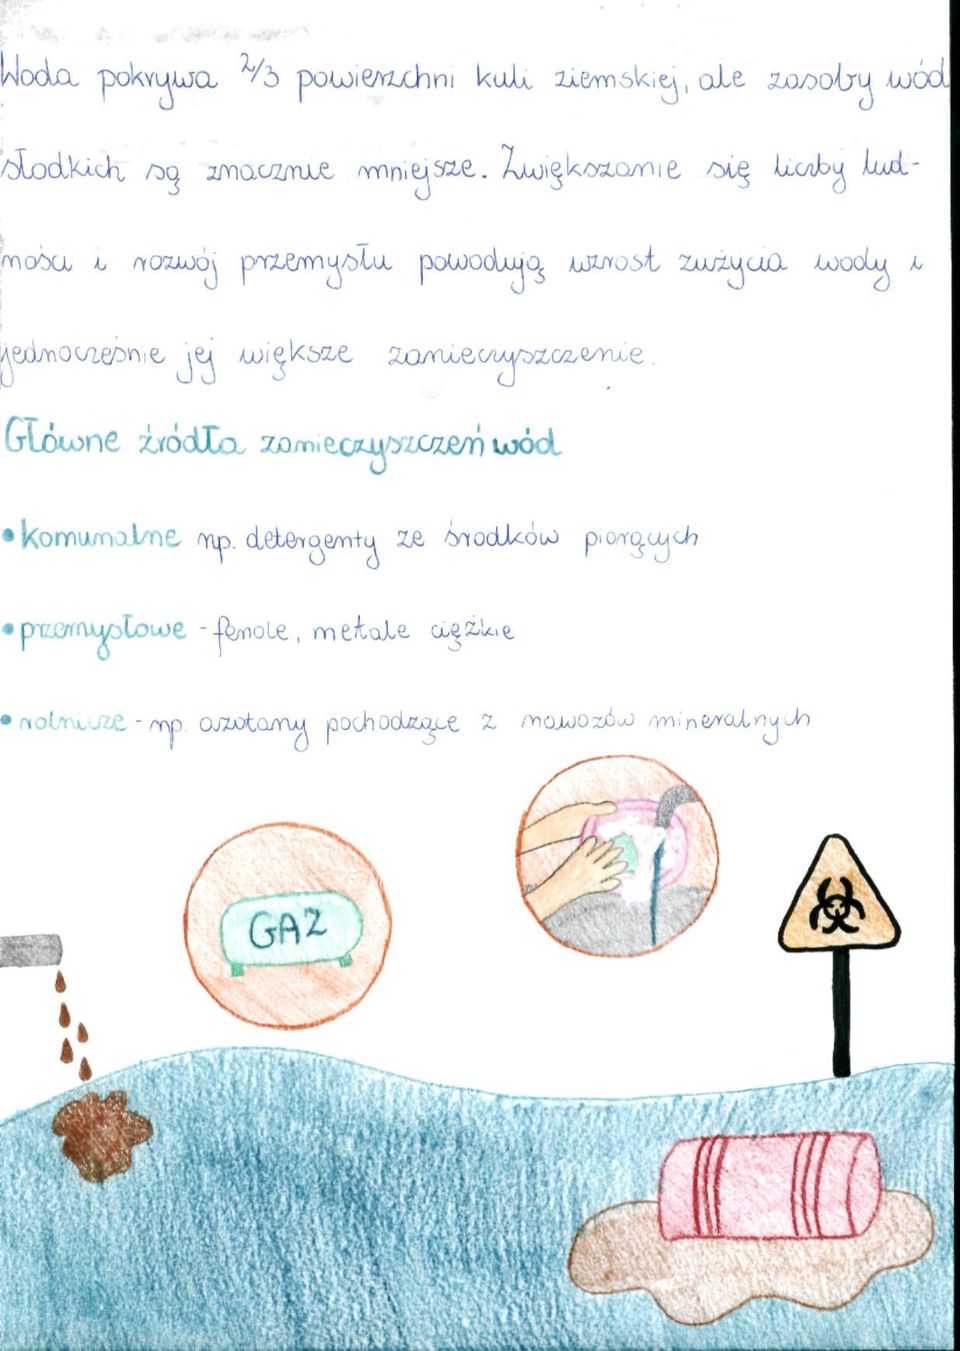 Woda pokrywa 2/3 powierzchni kuli ziemskiej, ale zasoby wód
słodkich są znacznie mniejsze. Zwiększanie się liczby lud-
ności i rozwój przemysłu powodują wzrost zużycia wody i
jednocześnie jej większe zanieczyszczenie.
Główne źródła zanieczyszczeń wód
• komunalne np. detergenty ze środków piorących
• przemysłowe - fenole, metale ciężkie
• rolnicze - np. azotany pochodzące z nawozów mineralnych
GAZ